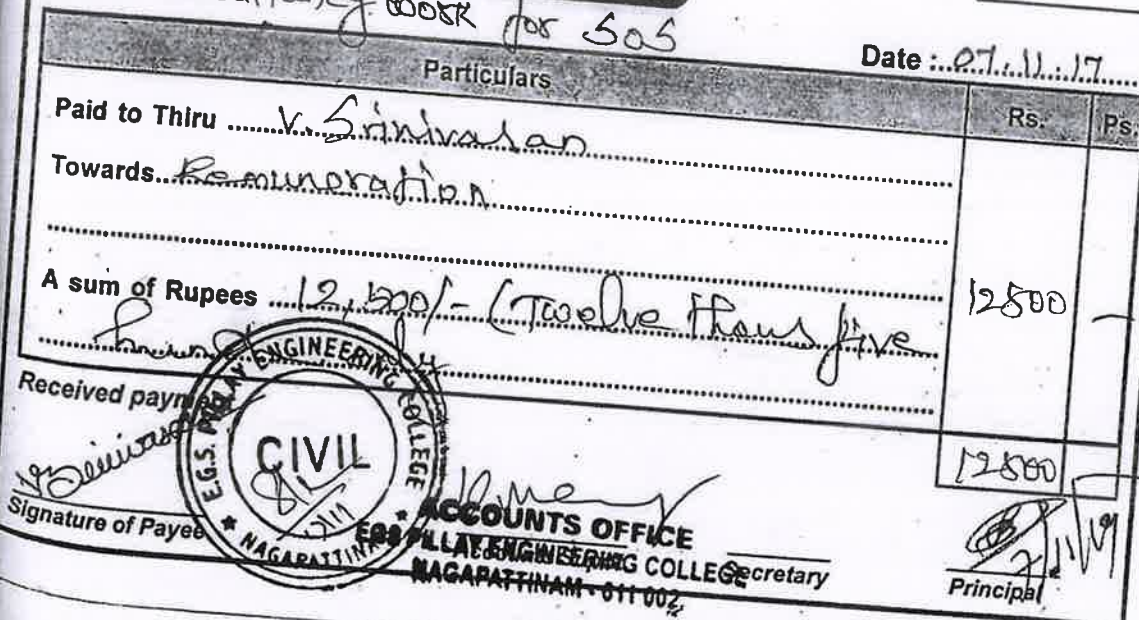 work for SOS
Date : 07.11.17
Particulars Rs. Ps.
Paid to Thiru V. Srinivasan
Towards Remuneration
A sum of Rupees 12,500/- (Twelve thous five 12500 —
Received
12500
E.G.S. PILLAY ENGINEERING COLLEGE
CIVIL
NAGAPATTINAM
Signature of Payee
ACCOUNTS OFFICE
EGS PILLAY ENGINEERING COLLEGE
NAGAPATTINAM - 611 002
Secretary
Principal